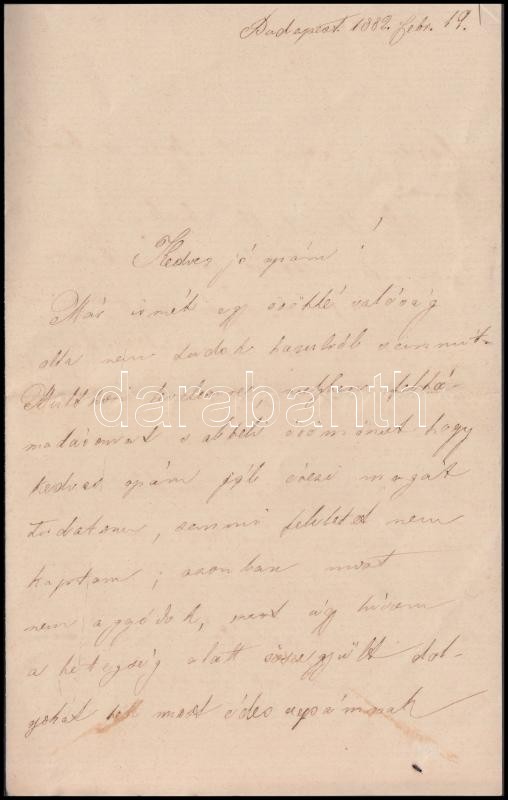 Budapest 1882. febr. 19.
Kedves jó apám!
Már ismét egy örökké valóság
olta nem tudok hazulról semmit.
Multkori levelemre, melyben feltá-
madásomat s abbeli örömömet hogy
kedves apám jól érzi magát
tudatom, semmi feleletet nem
kaptam; azonban most
nem aggódok, mert úgy hiszem
a betegség alatt össze gyült dol-
gokat kell most édes apámnak
darabanth